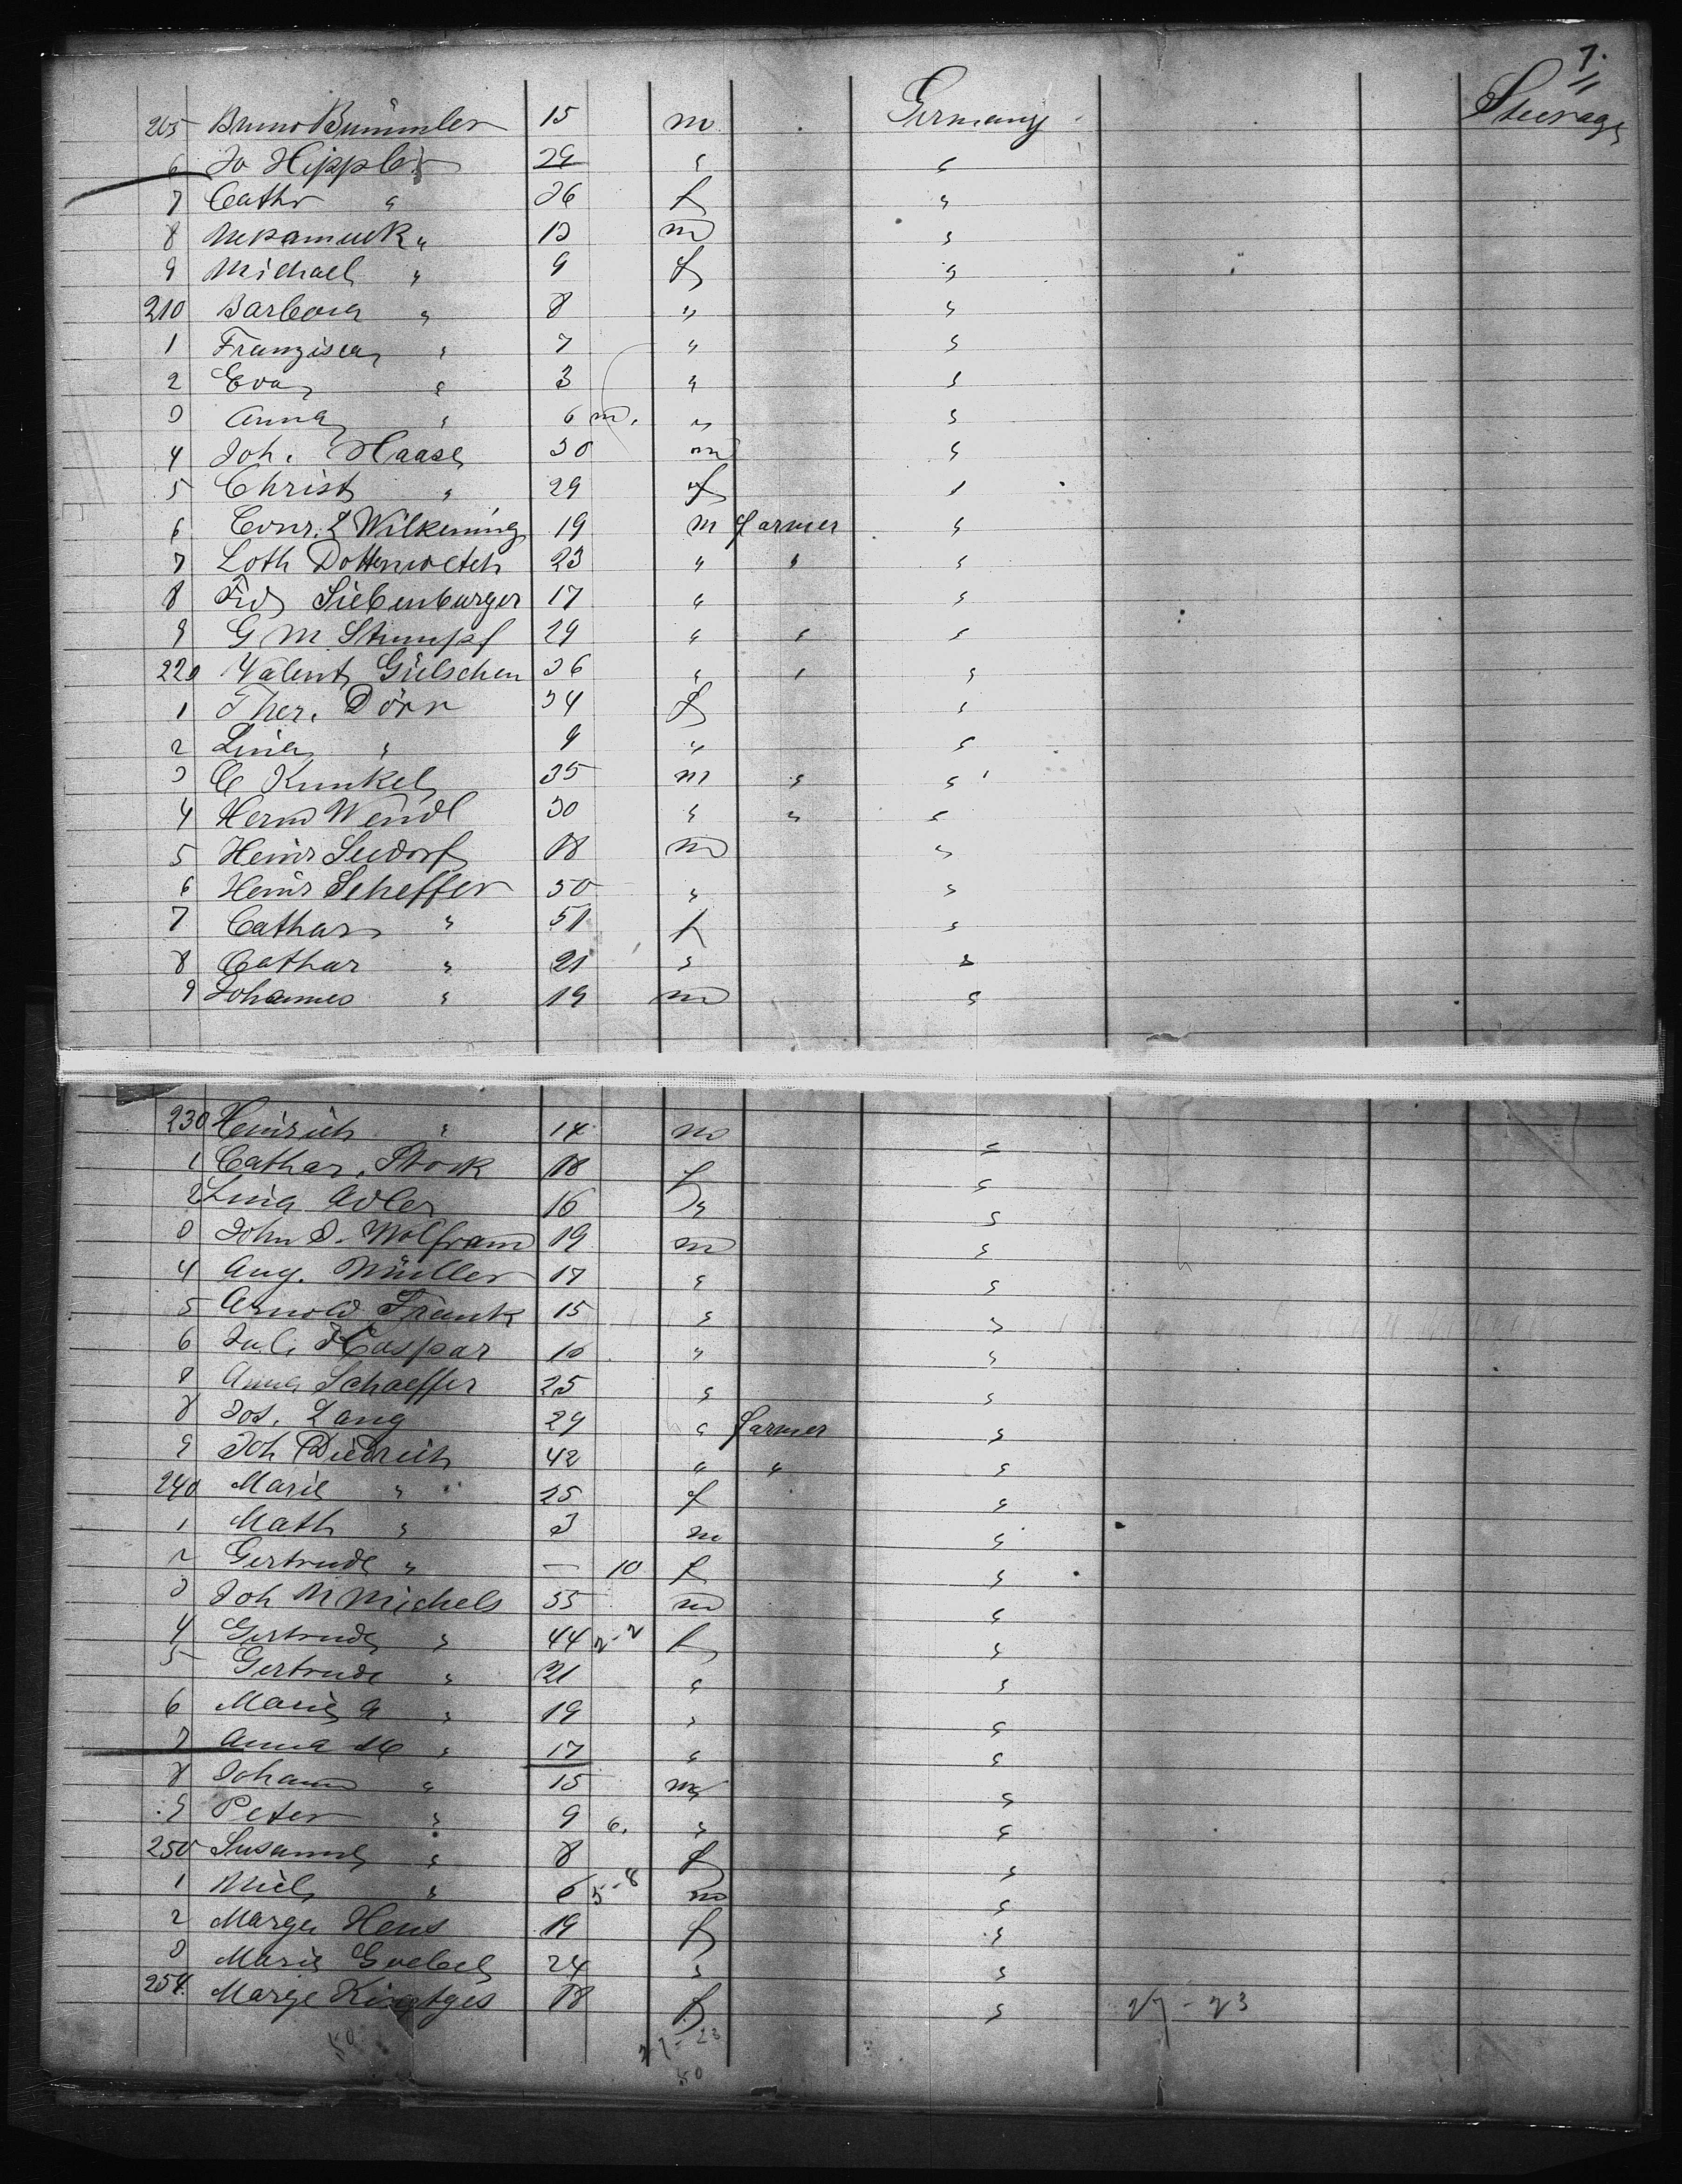 7.
205 Bruno Bümmler 15 m Germany Steerage
6 Jo Hippler 29 " "
7 Cathr " 36 f "
8 " 13 m "
9 Michael " 9 f "
210 Barbara " 8 " "
1 Franzisca " 7 " "
2 Eva " 3 " "
3 Anna " 6 m. " "
4 Joh. Haase 30 m "
5 Christ " 29 f "
6 Conr. L Wilkening 19 m farmer "
7 Loth 23 " " "
8 Frd Siebenburger 17 " "
9 G M Stumpf 29 " " "
220 Valent Gülschen 36 " " "
1 Ther. Dörr 34 f "
2 Lina " 9 " "
3 C Kunkel 35 m " "
4 Herm Wendl 30 " " "
5 Heinr Seedorf 18 m "
6 Heinr Scheffer 50 " "
7 Cathar " 51 f "
8 Cathar " 21 " "
9 Johannes " 19 m "
230 Heinrich " 14 m "
1 Cathar. Stork 18 f "
2 Lina Adler 16 " "
3 John S. Wolfram 19 m "
4 Aug. Müller 17 " "
5 Arnold Frank 15 " "
6 Jul. Kaspar 16 " "
7 Anna Schaeffer 25 " "
8 Jos. Lang 29 " farmer "
9 Joh Diedrich 42 " " "
240 Marie " 25 f "
1 Math " 3 m "
2 Gertrude " — 10 f "
3 Joh M Michels 55 m "
4 Gertrude " 44 2-2 f "
5 Gertrude " 21 " "
6 Marie A " 19 " "
7 Anna M " 17 " "
8 Johann " 15 m "
9 Peter " 9 6. " "
250 Susanne " 8 f "
1 Mich " 6 5-8 m "
2 Marga Hens 19 f "
3 Marie Goebel 24 " "
254. Marge 18 f " 27-23
50 27-23
50